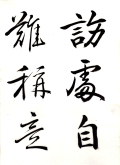 訪處自
難稱意